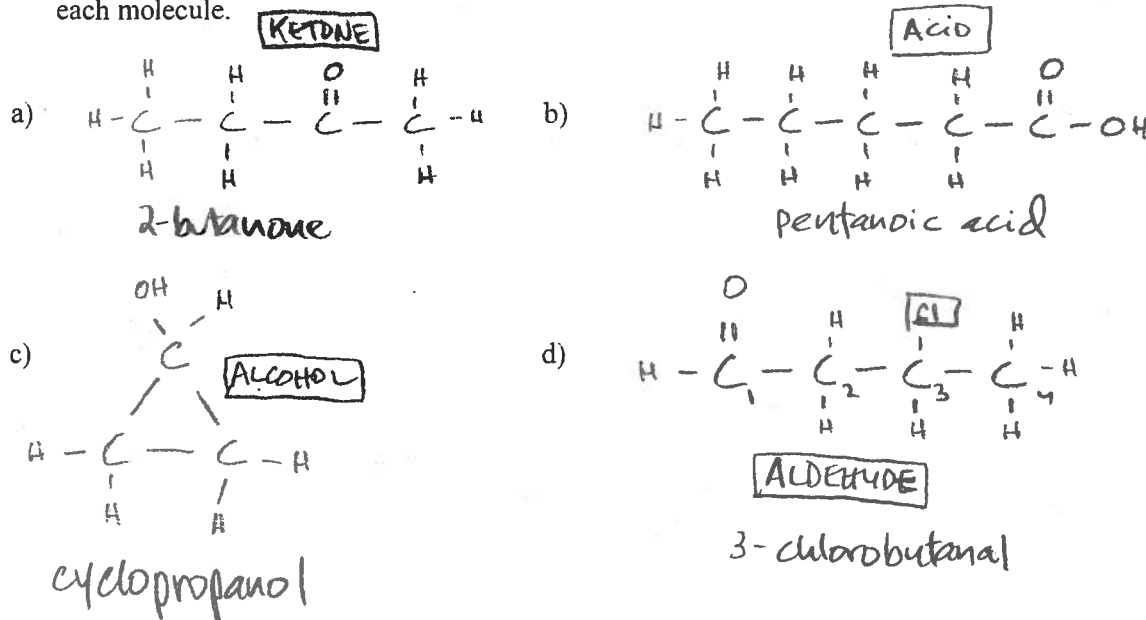 each molecule.
KETONE
a)
H H O H
H - C - C - C - C - H
H H H
2-butanone
Acid
b)
H H H H O
H - C - C - C - C - C - OH
H H H H
pentanoic acid
c)
OH H
C
ALCOHOL
H - C - C - H
H H
cyclopropanol
d)
O H Cl H
H - C1 - C2 - C3 - C4 - H
H H H
ALDEHYDE
3-chlorobutanal